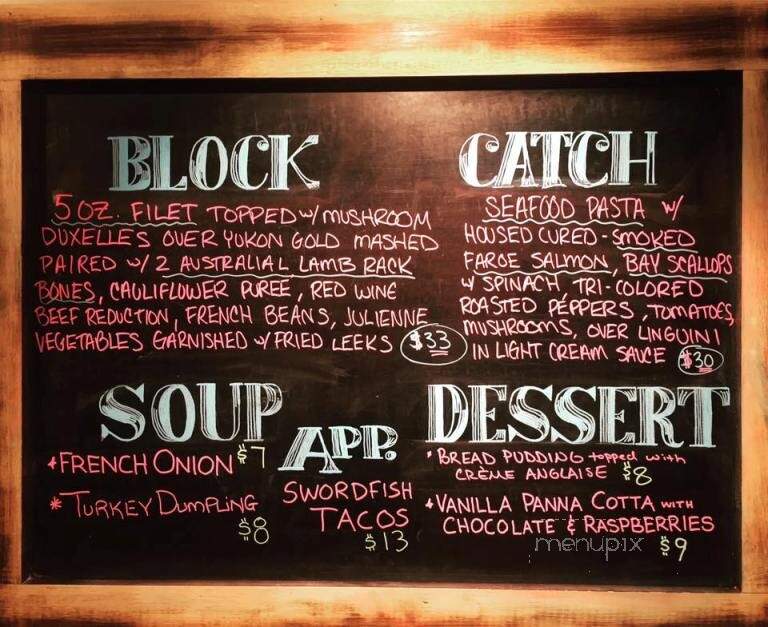 BLOCK
5 OZ. FILET TOPPED W/ MUSHROOM
DUXELLES OVER YUKON GOLD MASHED
PAIRED W/ 2 AUSTRALIAL LAMB RACK
BONES, CAULIFLOWER PUREE, RED WINE
BEEF REDUCTION, FRENCH BEANS, JULIENNE
VEGETABLES GARNISHED W/ FRIED LEEKS $33
CATCH
SEAFOOD PASTA W/
HOUSED CURED-SMOKED
FAROE SALMON, BAY SCALLOPS
W/ SPINACH TRI-COLORED
ROASTED PEPPERS, TOMATOES,
MUSHROOMS, OVER LINGUINI
IN LIGHT CREAM SAUCE $30
SOUP
FRENCH ONION $7
* TURKEY DUMPLING
$8
APP.
SWORDFISH
TACOS
$13
DESSERT
BREAD PUDDING topped with
CRÈME ANGLAISE $8
VANILLA PANNA COTTA WITH
CHOCOLATE & RASPBERRIES
$9
menupix